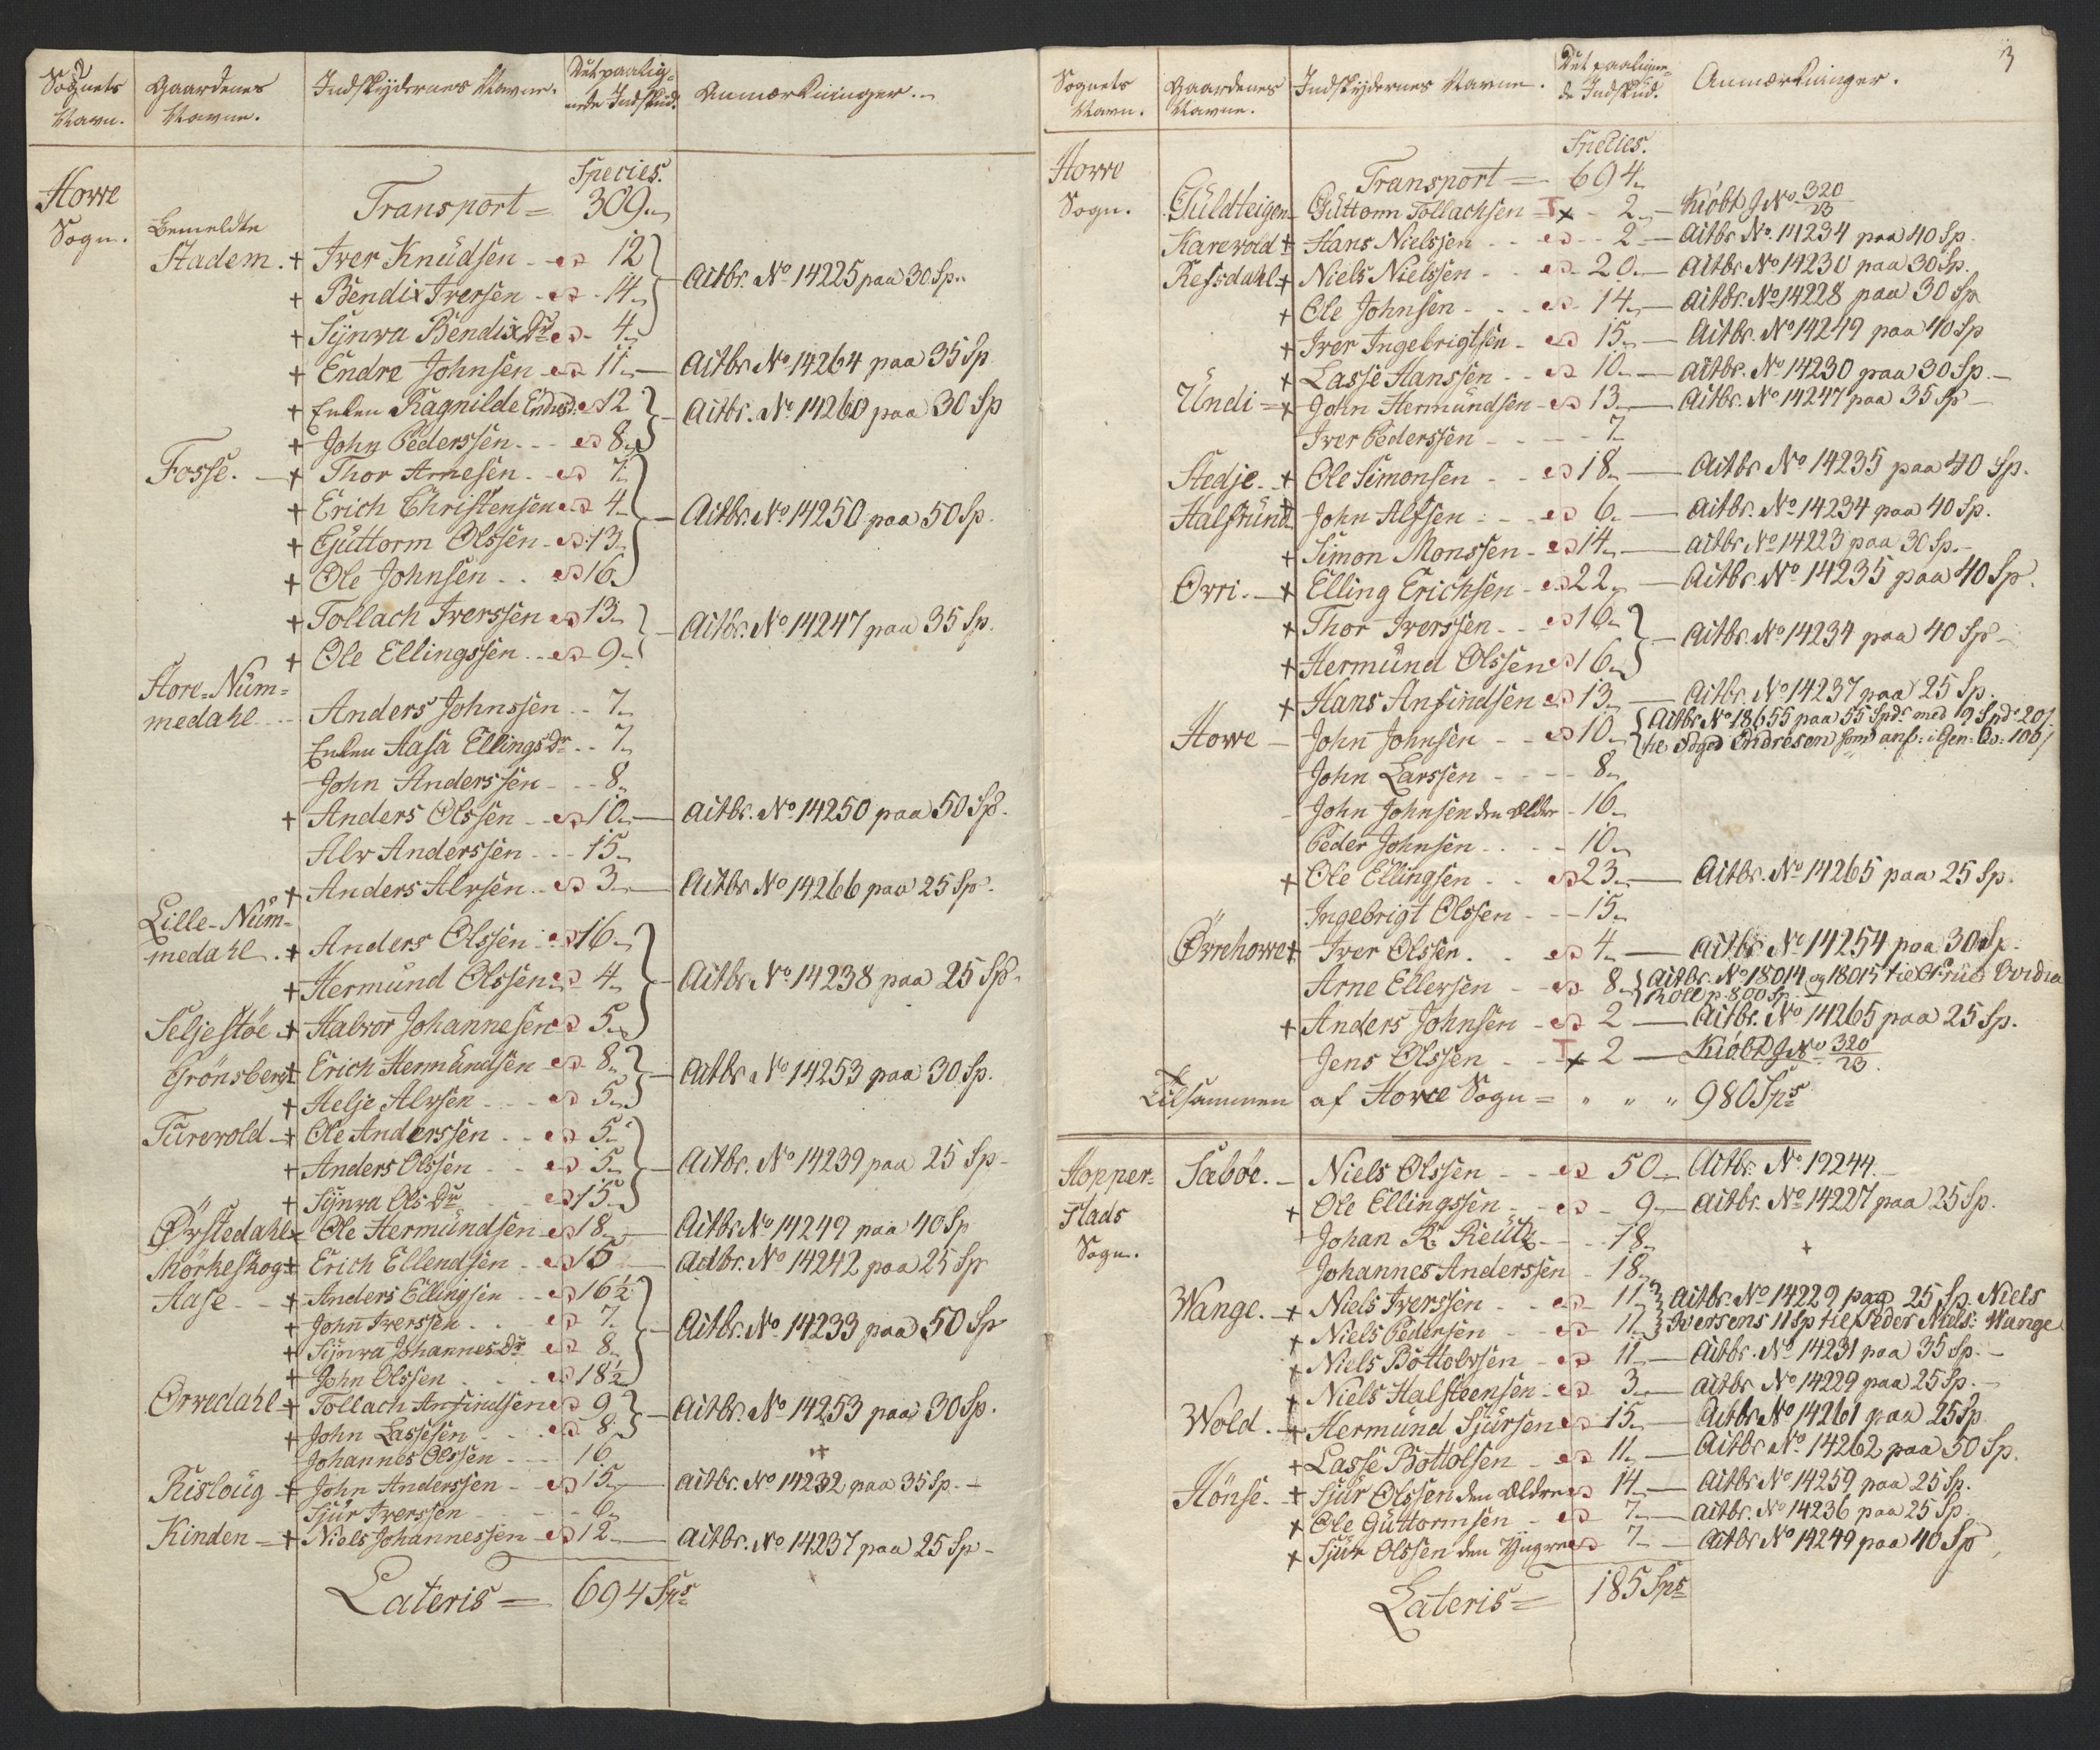 Sognets Navn. | Gaardenes Navne. | Indskydernes Navne. | Det paalignede Indskud. | Anmærkninger.
Howe Sogn. | | Transport = | Species. 309
Bemeldte
Stadem. | + Iver Knudsen | 12 | Actbr. No 14225 paa 30 Sp.
+ Bendix Iversen | 14
+ Synva Bendix Dr | 4
+ Endre Johnsen | 11 | Actbr. No 14264 paa 35 Sp
+ Enken Ragnilde Endresd. | 12 | Actbr. No 14260 paa 30 Sp
+ John Pederssen | 8
Fosse. | + Thor Arnesen | 7 | Actbr. No 14250 paa 50 Sp.
+ Erich Christensen | 4
+ Guttorm Olssen | 13
+ Ole Johnsen | 16
+ Tollach Iverssen | 13 | Actbr. No 14247 paa 35 Sp.
+ Ole Ellingssen | 9
Store-Num-
medahl | Anders Johnssen | 7
Enken Aasa Ellings Dr | 7
John Anderssen | 8
+ Anders Olssen | 10 | Actbr. No 14250 paa 50 Sp.
Alv Anderssen | 15
+ Anders Alvsen | 3 | Actbr No 14266 paa 25 Sp.
Lille-Num-
medahl. | + Anders Olssen | 16 | Actbr. No 14238 paa 25 Sp.
+ Hermund Olssen | 4
Seljestöe | + Halvor Johannesen | 5
Grönsberg | + Erich Hermundsen | 8 | Actbr No 14253 paa 30 Sp.
+ Helje Alvsen | 5
Turevold | + Ole Anderssen | 5 | Actbr. No 14239 paa 25 Sp
+ Anders Olssen | 5
+ Synva Ols Dr | 15
Ørstedahl | x Ole Hermundsen | 18 | Actbr No 14249 paa 40 Sp
Mörkeskog | + Erich Ellendsen | 15 | Actbr. No 14242 paa 25 Sp
Aase | + Anders Ellingsen | 16½ | Actbr. No 14233 paa 50 Sp
+ John Iverssen | 7
+ Synva Johannes Dr | 8
+ John Olssen | 18½
Ørredahl | + Tollach Anfindsen | 9 | Actbr. No 14253 paa 30 Sp.
+ John Lassesen | 8
Johannes Olssen | 16 | +
Risloug | + John Anderssen | 15 | Actbr. No 14232 paa 35 Sp.
Sjur Iverssen | 6
Kinden | + Niels Johannessen | 12 | Actbr. No 14237 paa 25 Sp
Lateris = 694 Sps
3
Sognets Navn. | Gaardenes Navne. | Indskydernes Navne. | Det paalignede Indskud. | Anmærkninger.
Howe Sogn. | | Transport = | Species. 694
Guldteigen | Guttorm Tollachsen | x 2 | Kiöbt J No 320/23
Karevold | + Hans Nielssen | 2 | Actbr No. 14234 paa 40 Sp.
Refsdahl | + Niels Nielssen | 20 | Actbr No 14230 paa 30 Sp.
+ Ole Johnsen | 14 | Actbr. No 14228 paa 30 Sp
+ Iver Ingebrigtsen | 15 | Actbr. No 14249 paa 40 Sp
+ Lasse Hanssen | 10 | Actbr. No 14230 paa 30 Sp.
Undi | + John Hermundsen | 13 | Actbr. No 14247 paa 35 Sp
Iver Pederssen | 7
Stedje | + Ole Simonsen | 18 | Actbr No 14235 paa 40 Sp.
Halfrund | John Alfsen | 6 | Actbr. No 14234 paa 40 Sp.
+ Simon Monssen | 14 | Actbr No 14223 paa 30 Sp.
Ovri. | + Elling Erichsen | 22 | Actbr. No 14235 paa 40 Sp.
+ Thor Iverssen | 16 | Actbr. No 14234 paa 40 Sp
+ Hermund Olssen | 16
+ Hans Anfindsen | 13 | Actbr. No 14237 paa 25 Sp.
Howe | John Johnsen | 10 | Actbr No 18655 paa 55 Spdr med 9 Spd 20 s
Endresen som anf: i Gen:
John Larssen | 8
John Johnsen den Ældre | 16
Peder Johnsen | 10
+ Ole Ellingsen | 23 | Actbr. No 14265 paa 25 Sp.
Ingebrigt Olssen | 15
Øvrehowe | + Iver Olssen | 4 | Actbr No 14254 paa 30 Sp.
Arne Ellersen | 8 | Actbr. No 18014 og 18015 til
Boll p. 800 Sp.
+ Anders Johnsen | 2 | Actbr. No 14265 paa 25 Sp.
Jens Olssen | x 2 | Kiöbt J No 320/23.
Tilsammen af Howe Sogn = " " " 980 Sps
Hopper-
stads
Sogn. | Saböe. | Niels Olssen | 50 | Actbr. No 19244.
+ Ole Ellingssen | 9 | Actbr. No 14227 paa 25 Sp.
Johan K. Reutz | 18 | +
Johannes Anderssen | 18
Wange. | + Niels Iverssen | 11 | Actbr. No 14229 paa 25 Sp. Niels
+ Niels Pedersen | 11 | Iversens 11 Sp til Peder Niels: Wange
+ Niels Bottolvsen | 11 | Actbr. No 14231 paa 35 Sp.
+ Niels Halsteensen | 3 | Actbr No 14229 paa 25 Sp.
Wold. | + Hermund Sjursen | 15 | Actbr No 14261 paa 25 Sp
+ Lasse Bottolsen | 11 | Actbr No 14262 paa 50 Sp.
Hönse. | + Sjur Olssen den Ældre | 14 | Actbr No 14259 paa 25 Sp.
+ Ole Guttormsen | 7 | Actbr. No 14236 paa 25 Sp.
+ Sjur Olssen den Yngre | 7 | Actbr No 14249 paa 40 Sp
Lateris = 185 Sps